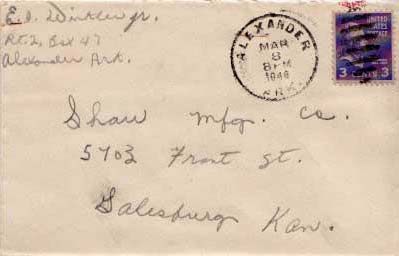 E. D. Winkler Jr.
Rt. 2, Box 47
Alexander Ark.
ALEXANDER
MAR
8
8 PM
1946
ARK.
UNITED STATES
POSTAGE
3 CENTS 3
Shaw Mfg. Co.
5703 Front St.
Galesburg Kan.